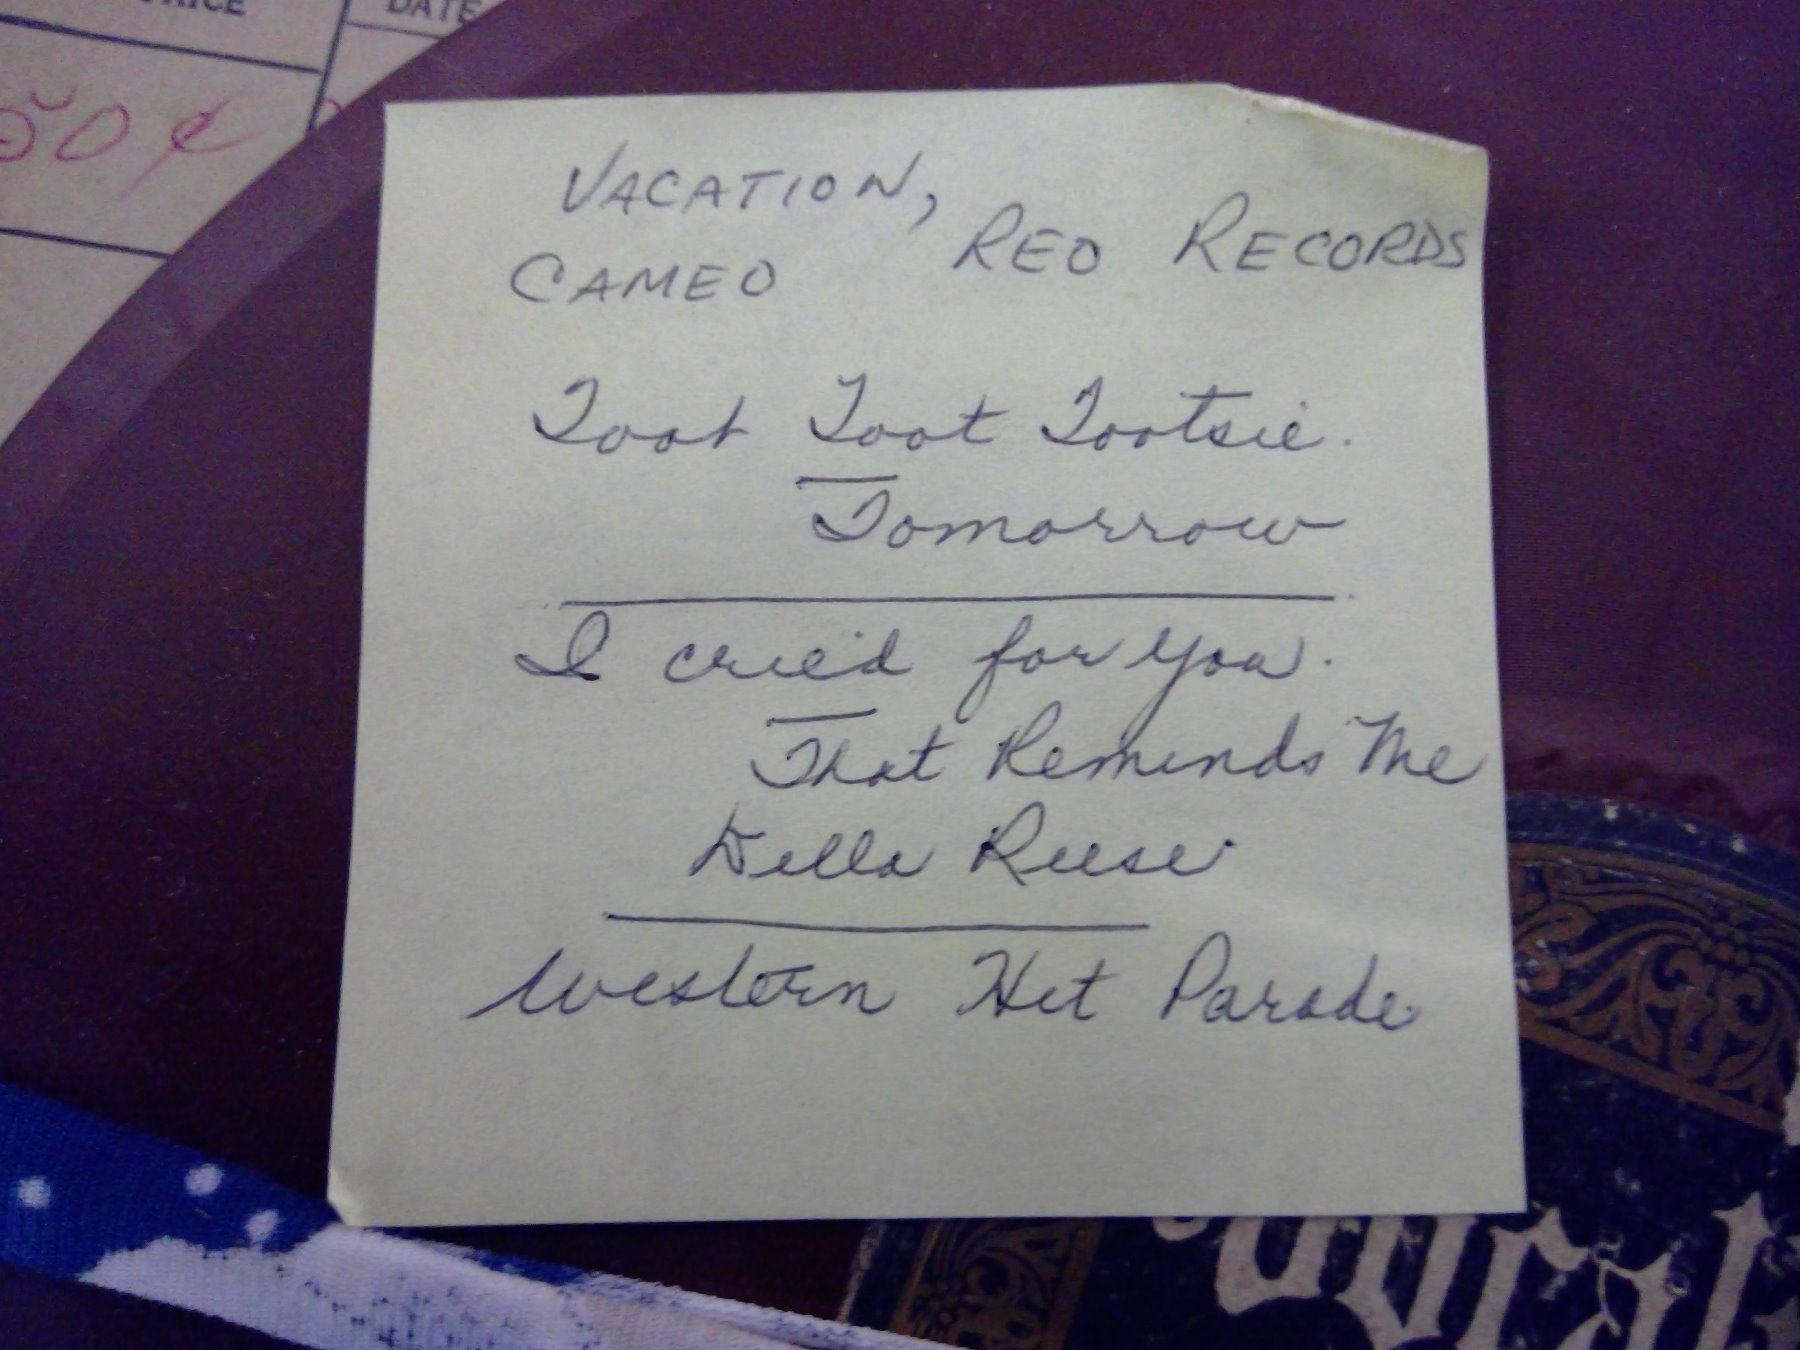 DATE
50¢
VACATION, REO RECORDS
CAMEO
Toot Toot Tootsie.
Tomorrow
I cried for you.
That Reminds Me
Della Reese
Western Hit Parade